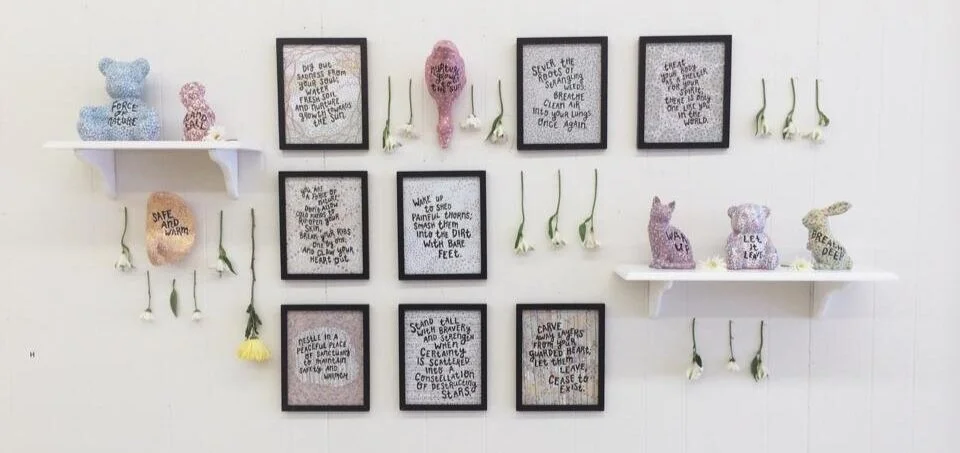 FORCE
OF
NATURE
DIG OUT
SADNESS FROM
YOUR SOUL;
WATER
FRESH SOIL
AND NURTURE
GROWTH TOWARDS
THE SUN.
NURTURE
GROWTH
TO
THE SUN
SEVER THE
ROOTS OF
STRANGLING
WEEDS;
BREATHE
CLEAN AIR
INTO YOUR LUNGS
ONCE AGAIN.
TREAT
YOUR BODY
AS A SHELTER
FOR YOUR
SPIRIT;
THERE IS ONLY
ONE LIKE YOU
IN THE
WORLD.
SAFE
AND
WARM
YOU ARE
A FORCE OF
NATURE,
DON'T ALLOW
COLD HANDS TO
RIP OPEN YOUR
SKIN,
BREAK YOUR RIBS
ONE BY ONE,
AND CLAW YOUR
HEART OUT.
WAKE UP
TO SHED
PAINFUL THORNS;
SMASH THEM
INTO THE DIRT
WITH BARE
FEET.
WAKE
UP
LET
IT
LEAVE
BREATHE
DEEP
NESTLE IN A
PEACEFUL PLACE
OF SANCTUARY
TO MAINTAIN
SAFETY AND
WARMTH.
STAND TALL
WITH BRAVERY
AND STRENGTH
WHEN
CERTAINTY
IS SCATTERED
INTO A
CONSTELLATION
OF DESTRUCTING
STARS.
CARVE
AWAY LAYERS
FROM YOUR
GUARDED HEART,
LET THEM
LEAVE,
CEASE TO
EXIST.
H